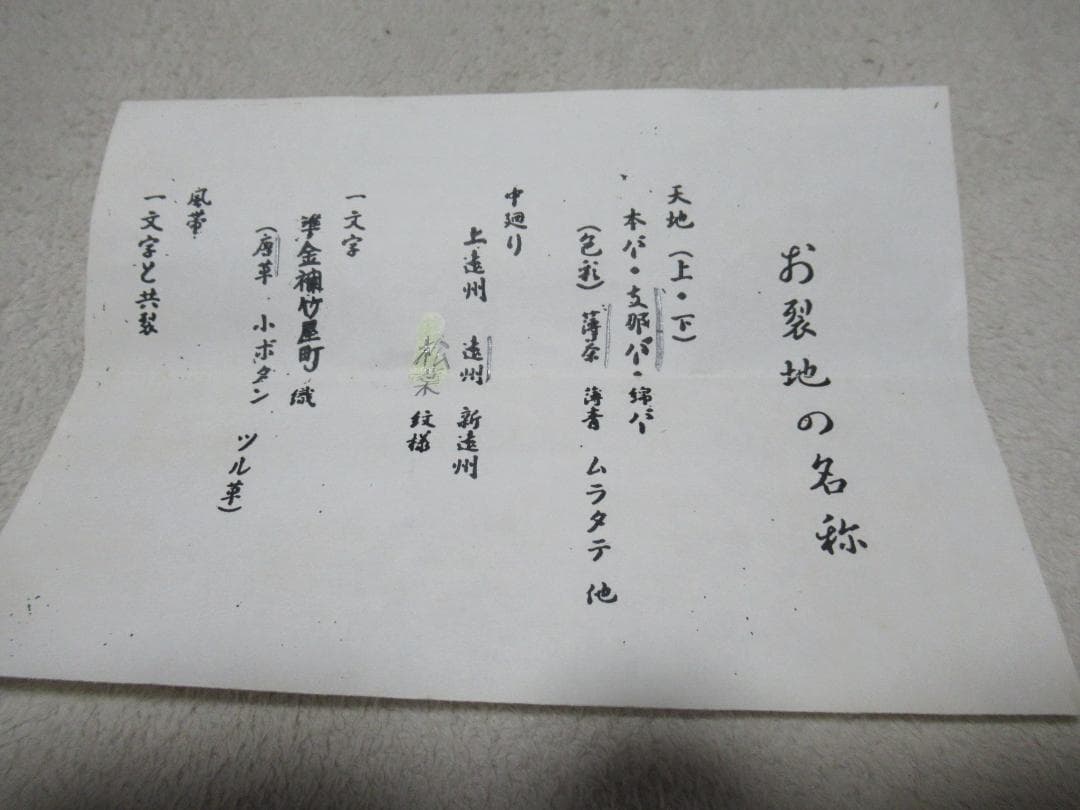 お裂地の名称
天地(上・下)
本パー・支那パー・綿パー
(色彩) 薄茶 薄青 ムラタテ 他
中廻り
上遠州 遠州 新遠州
松葉 紋様
一文字
準金襴竹屋町織
(唐草 小ボタン ツル草)
風帯
一文字と共裂